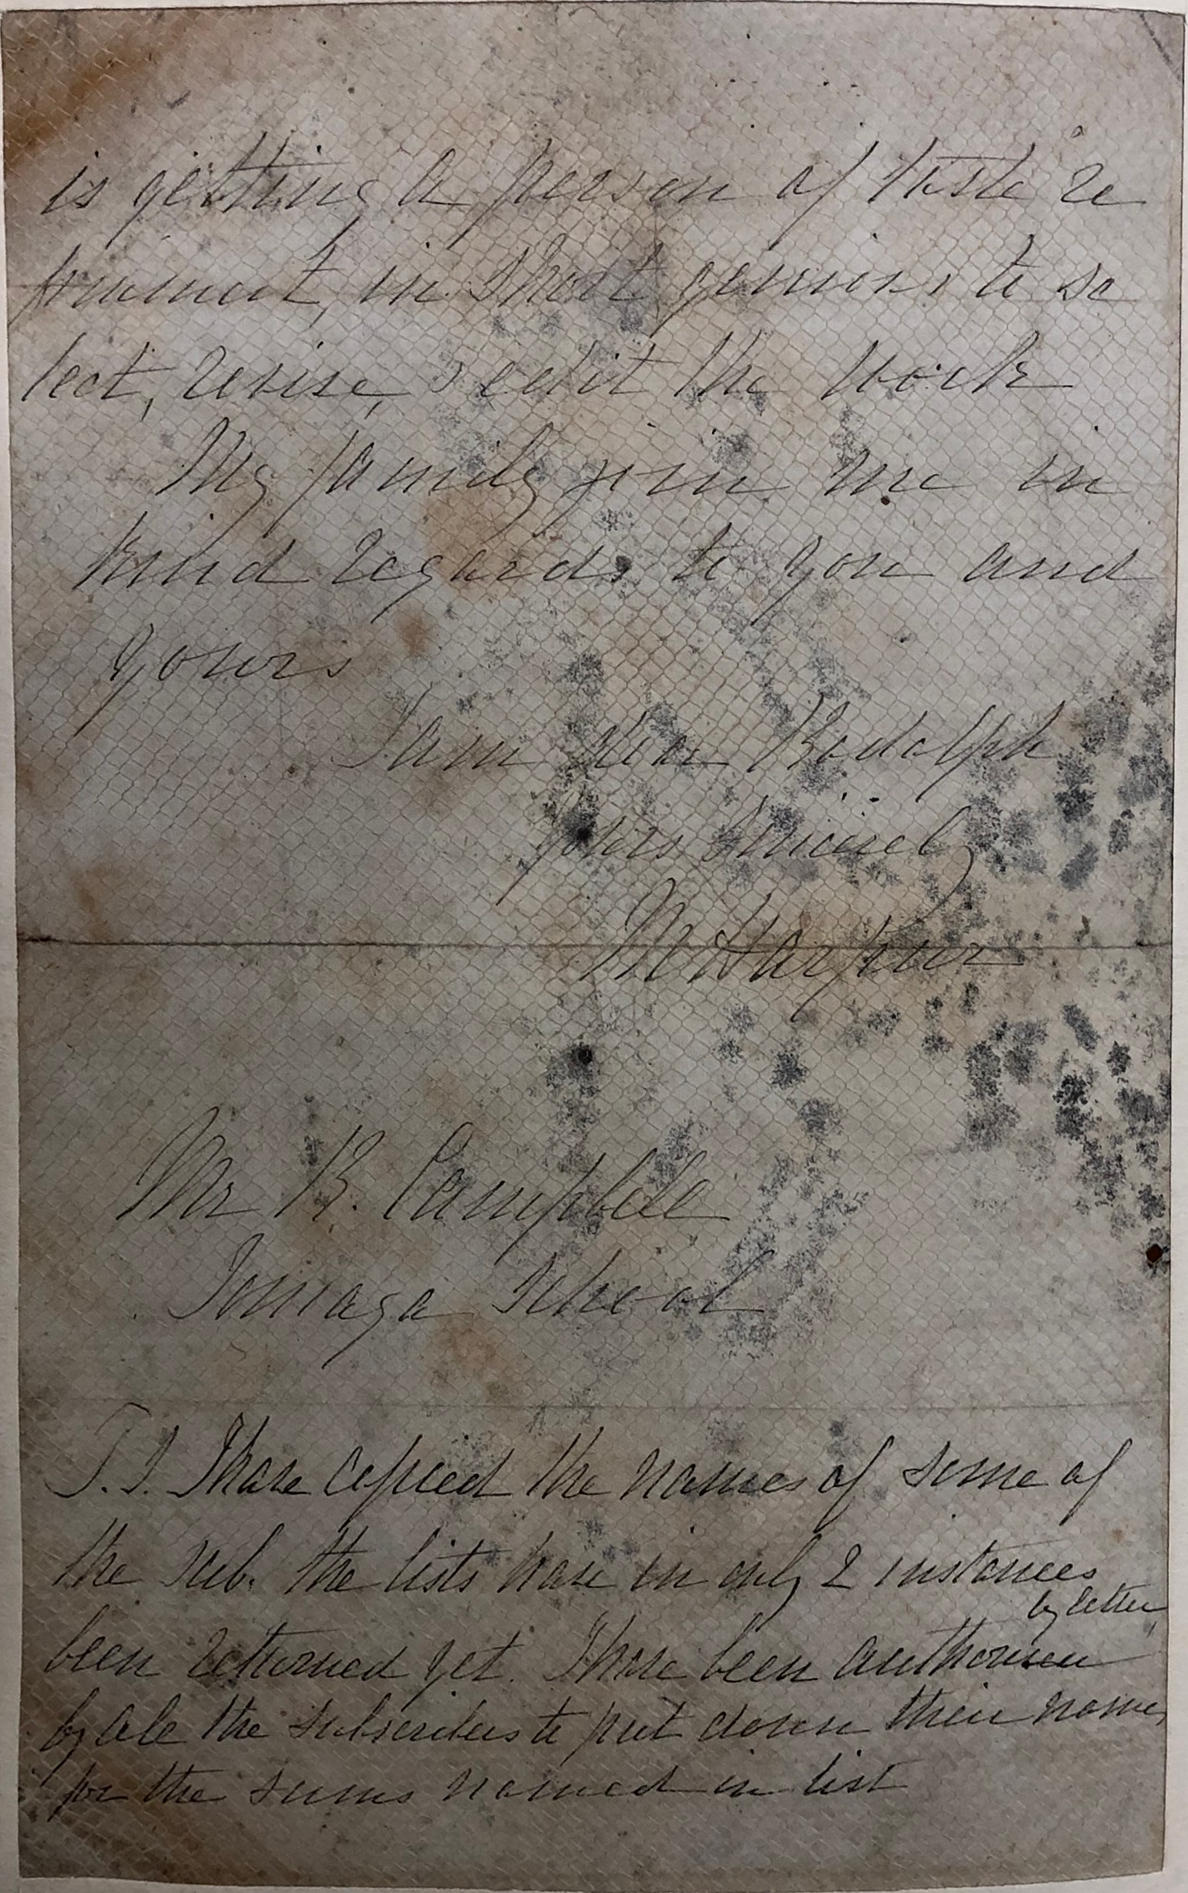 is getting a person of taste re
finement, in short genius, to se
lect, revise, & edit the work
My family join me in
kind regards to you and
yours
I am dear Rodolph
Yours Sincerely
M Harpur
Mr R. Campbell
Tomaga School
P.S. I have copied the names of some of
the sub. the lists have in only 2 instances
been retturned yet. I have been authorised by letter
by all the subscribers to put down their names
for the sums named in list